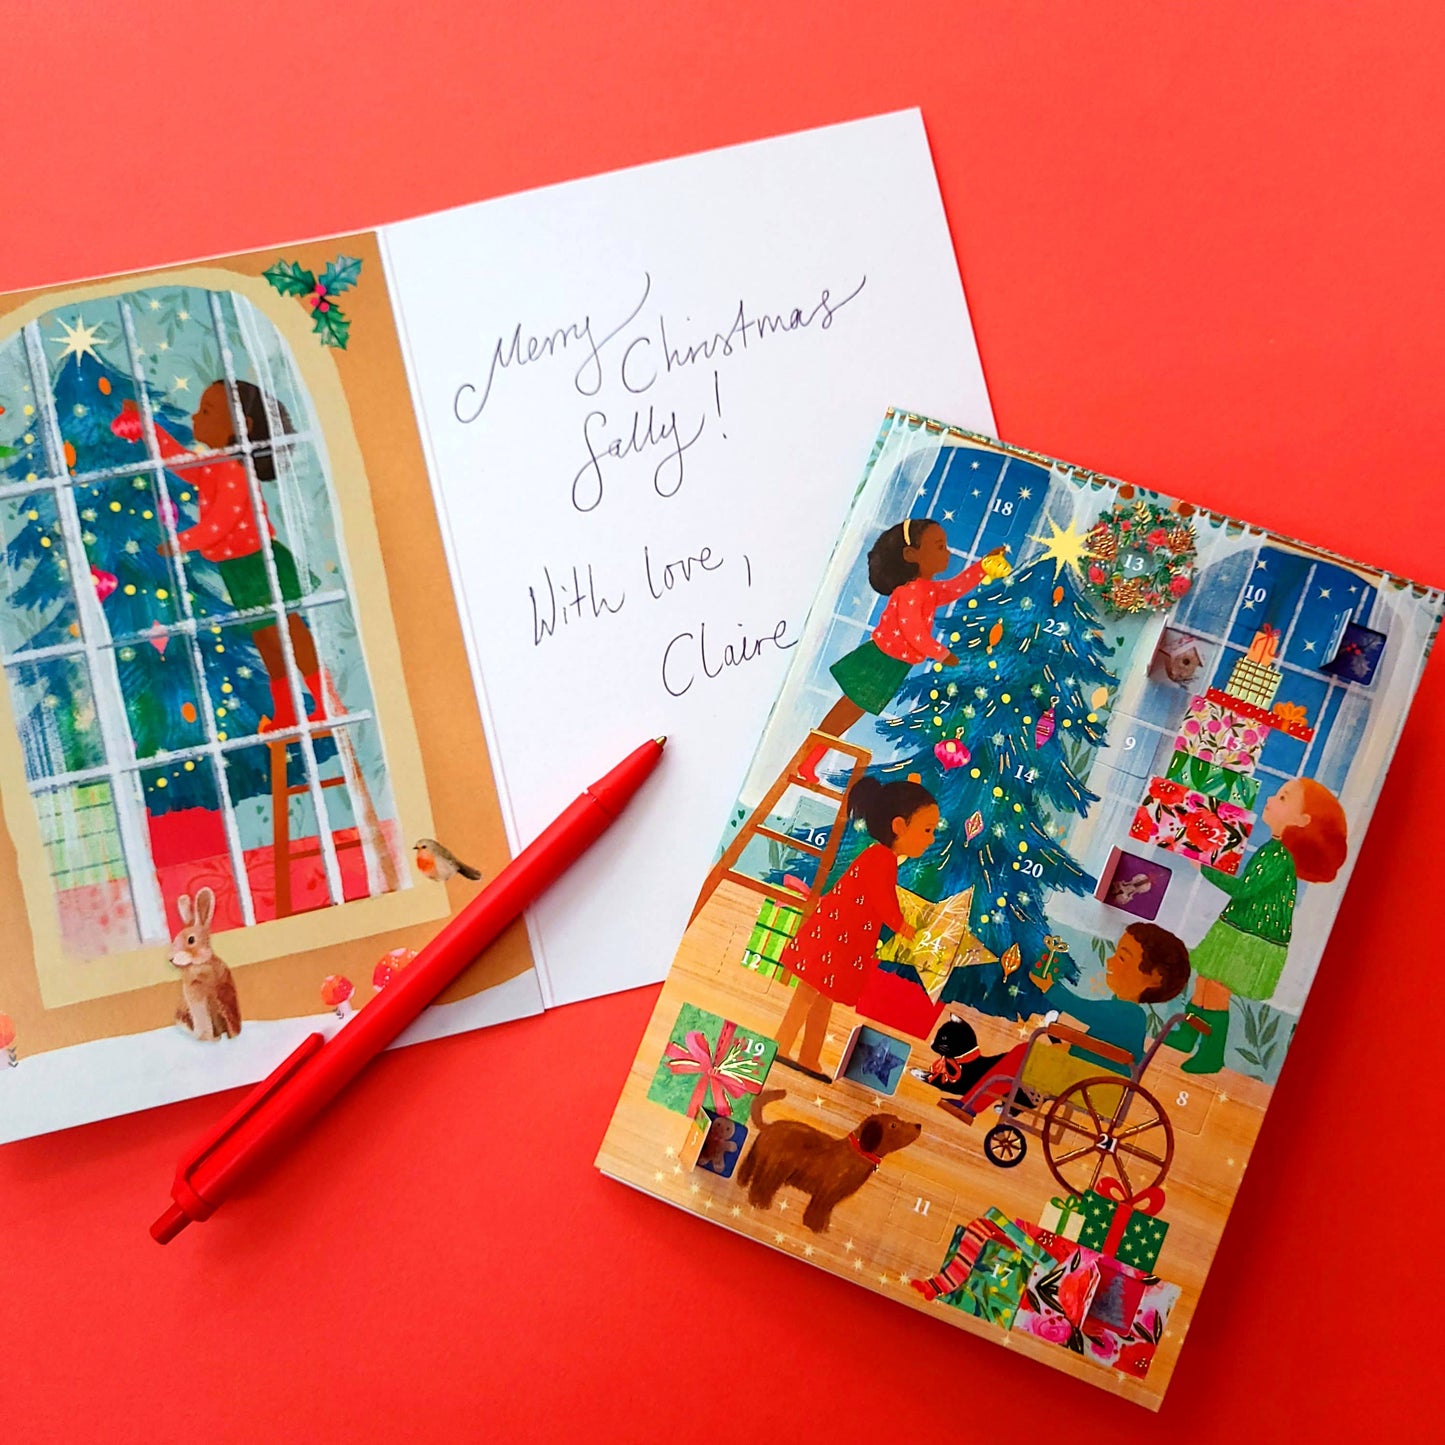 Merry Christmas
Sally!
With love,
Claire
18
13
10
22
7
9
15
14
23
16
20
24
12
19
8
21
11
17